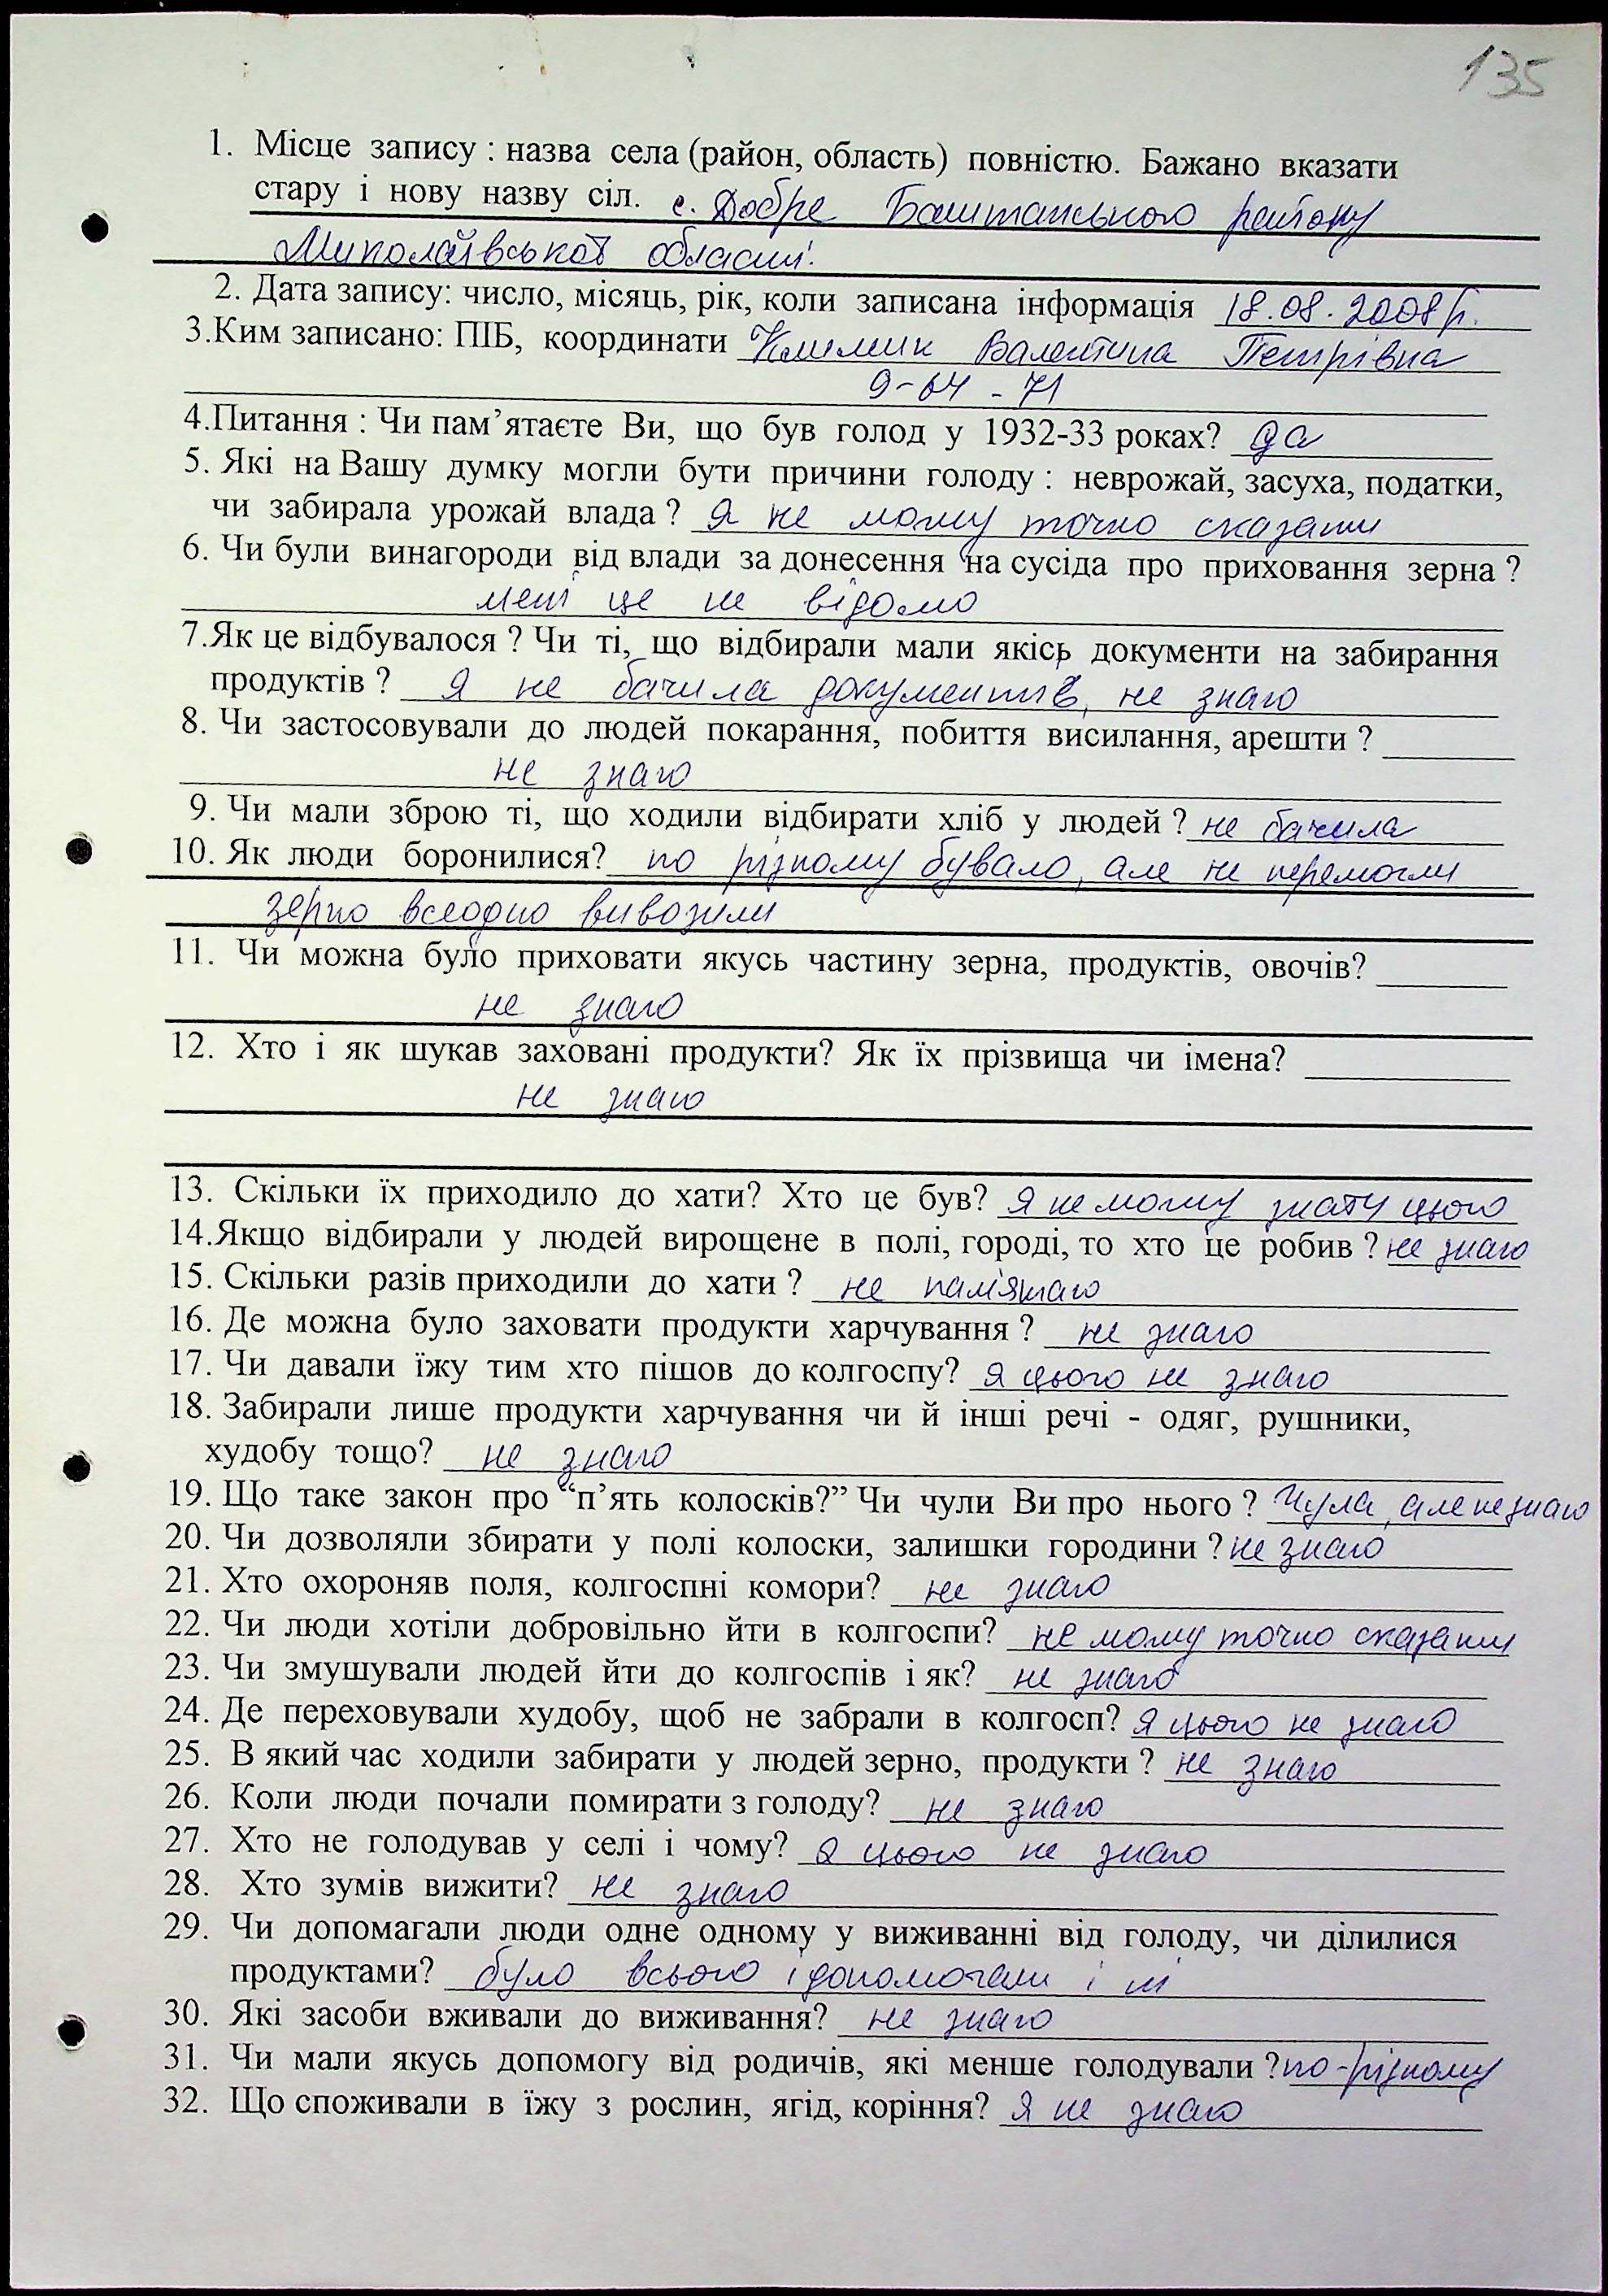 135
1. Місце запису : назва села (район, область) повністю. Бажано вказати
стару і нову назву сіл. с. Добре Баштанського району
Миколаївської області.
2. Дата запису: число, місяць, рік, коли записана інформація 18.08.2008р.
3.Ким записано: ПІБ, координати Климик Валентина Петрівна
9-64-71
4.Питання : Чи пам’ятаєте Ви, що був голод у 1932-33 роках? да
5. Які на Вашу думку могли бути причини голоду : неврожай, засуха, податки,
чи забирала урожай влада ? Я не можу точно сказати
6. Чи були винагороди від влади за донесення на сусіда про приховання зерна ?
мені це не відомо
7.Як це відбувалося ? Чи ті, що відбирали мали якісь документи на забирання
продуктів ? Я не бачила документів, не знаю
8. Чи застосовували до людей покарання, побиття висилання, арешти ?
не знаю
9. Чи мали зброю ті, що ходили відбирати хліб у людей ? не бачила
10. Як люди боронилися? по різному бувало, але не перемогли
зерно всеодно вивозили
11. Чи можна було приховати якусь частину зерна, продуктів, овочів?
не знаю
12. Хто і як шукав заховані продукти? Як їх прізвища чи імена?
не знаю
13. Скільки їх приходило до хати? Хто це був? Я не можу знати цього
14.Якщо відбирали у людей вирощене в полі, городі, то хто це робив ? не знаю
15. Скільки разів приходили до хати ? не пам'ятаю
16. Де можна було заховати продукти харчування ? не знаю
17. Чи давали їжу тим хто пішов до колгоспу? я цього не знаю
18. Забирали лише продукти харчування чи й інші речі - одяг, рушники,
худобу тощо? не знаю
19. Що таке закон про “п’ять колосків?” Чи чули Ви про нього ? Чула, але не знаю
20. Чи дозволяли збирати у полі колоски, залишки городини ? не знаю
21. Хто охороняв поля, колгоспні комори? не знаю
22. Чи люди хотіли добровільно йти в колгоспи? не можу точно сказати
23. Чи змушували людей йти до колгоспів і як? не знаю
24. Де переховували худобу, щоб не забрали в колгосп? Я цього не знаю
25. В який час ходили забирати у людей зерно, продукти ? не знаю
26. Коли люди почали помирати з голоду? не знаю
27. Хто не голодував у селі і чому? Я цього не знаю
28. Хто зумів вижити? не знаю
29. Чи допомагали люди одне одному у виживанні від голоду, чи ділилися
продуктами? було всього і допомогали і ні
30. Які засоби вживали до виживання? не знаю
31. Чи мали якусь допомогу від родичів, які менше голодували ? по-різному
32. Що споживали в їжу з рослин, ягід, коріння? Я не знаю